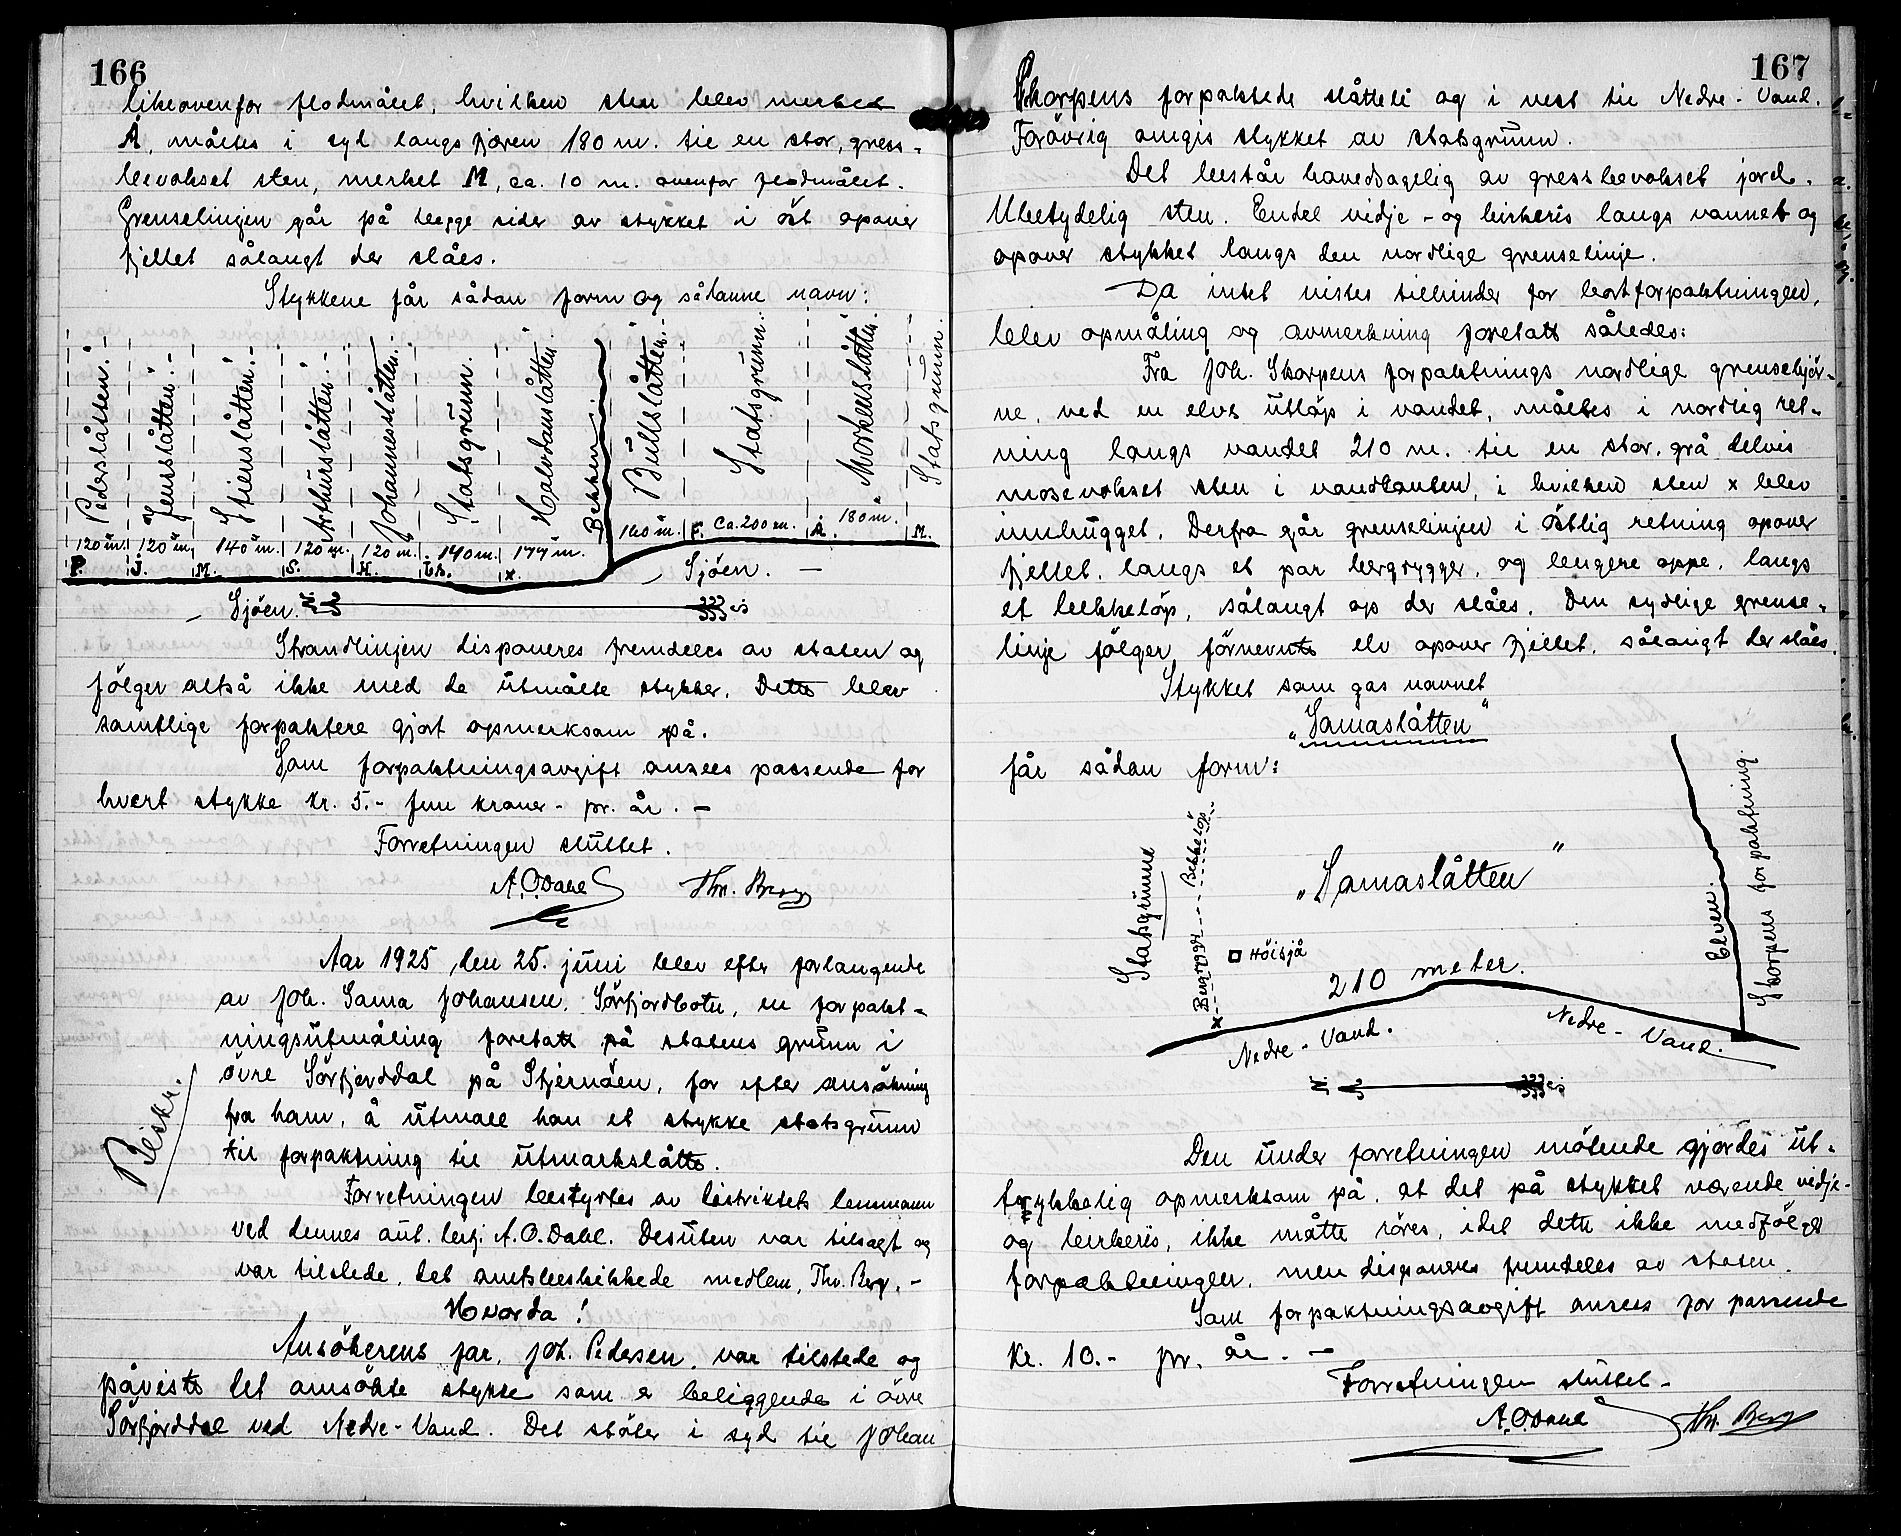 166
likeovenfor flodmålet, hvilken sten blev merket
Å, måltes i syd langs fjæren 180 m. til en stor, gress-
bevokset sten, merket M, ca. 10 m. ovenfor flodmålet.
Grenselinjen går på begge sider av stykket i öst opover
fjellet sålangt der slåes.
Stykkene får sådan form og sådanne navn:
"Pederslåtten".
"Jenslåtten".
"Stienslåtten".
"Arthurslåtten".
"Johannesslåtten".
Statsgrunn.
"Halvdanslåtten".
Bekken.
"Bullslåtten".
Statsgrunn.
"Morkenslåtten".
Statsgrunn.
120 m. 120 m. 140 m. 120 m. 120 m. 140 m. 177 m. 160 m. ca. 200 m. 180 m.
P. J. M. S. H. Th. x. F. Å. M.
Sjöen. –
– Sjöen.
N. S.
Strandlinjen disponeres fremdeles av staten og
fölger altså ikke med de utmålte stykker. Dette blev
samtlige forpaktere gjort opmerksom på.
Som forpaktningsavgift ansees passende for
hvert stykke kr. 5.- fem kroner - pr. år. –
Forretningen sluttet.
A. O. Dahl Thv. Berg
Aar 1925, den 25. juni blev efter forlangende
av Joh. Sama Johansen, Sörfjordbotn, en forpakt-
ningsutmåling foretatt på statens grunn i
övre Sörfjorddal på Stjernöen, for efter ansökning
fra ham, å utmåle ham et stykke statsgrunn
til forpaktning til utmarkslåtte.
Beskr.
Forretningen bestyrtes av distriktets lensmann
ved dennes aut. betj. A. O. Dahl. Desuten var tilsagt og
var tilstede, det amtsbeskikkede medlem, Thv. Berg. -
Hvorda!
Ansökerens far, Joh. Pedersen, var tilstede og
påviste det ansökte stykke som er beliggende i övre
Sörfjorddal ved Nedre-Vand. Det stöter i syd til Johan
167
Skorpens forpaktede slåtteli og i vest til Nedre-Vand.
Forövrig omgis stykket av statsgrunn.
Det består hovedsagelig av gressbevokset jord.
Ubetydelig sten. Endel vidje- og birkeris langs vannet og
opover stykket langs den nordlige grenselinje.
Da intet vistes tilhinder for bortforpaktningen,
blev opmåling og avmerkning foretatt således:
Fra Joh. Skorpens forpaktnings nordlige grensehjör-
ne, ved en elvs utlöp i vandet, måltes i nordlig ret-
ning langs vandet 210 m. til en stor, grå delvis
mosevokset sten i vandkanten, i hvilken sten x blev
innhugget. Derfra går grenselinjen i östlig retning opover
fjellet, langs et par bergrygger, og lengere oppe, langs
et bekkelöp, sålangt op der slåes. Den sydlige grense-
linje fölger förnevnte elv opover fjellet, sålangt der slåes.
Stykket som gas navnet
"Samaslåtten"
får sådan form:
Statsgrunn
Bergrygg Bekkelöp
"Samaslåtten"
Höisjå
210 meter.
Elven.
Skorpens forpaktning
x
Nedre-Vand.
Nedre-Vand.
N. S.
Den under forretningen mötende gjordes ut-
trykkelig opmerksom på, at det på stykket værende vidje-
og birkeris, ikke måtte röres, idet dette ikke medfölger
forpaktningen, men disponeres fremdeles av staten.
Som forpaktningsavgift ansees for passende
kr. 10.- pr. år. –
Forretningen sluttet -
A. O. Dahl Thv. Berg